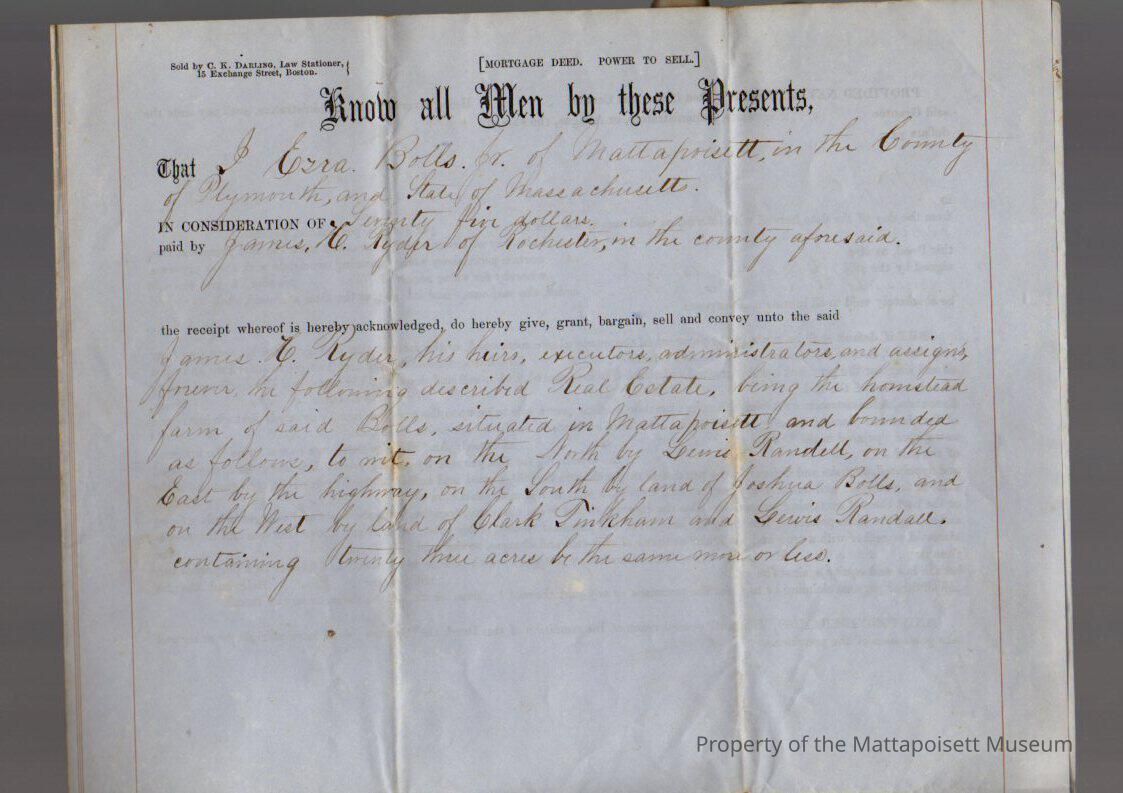 Sold by C. K. DARLING, Law Stationer,
15 Exchange Street, Boston.
[MORTGAGE DEED. POWER TO SELL.]
Know all Men by these Presents,
That I Ezra. Bolls. Jr. of Mattapoisett, in the County
of Plymouth, and State of Massachusetts.
IN CONSIDERATION OF Seventy five dollars.
paid by James, H. Ryder of Rochester, in the county aforesaid.
the receipt whereof is hereby acknowledged, do hereby give, grant, bargain, sell and convey unto the said
James. H. Ryder, his heirs, executors, administrators, and assigns,
forever, the following described Real Estate, being the homstead
farm of said Bolls, situated in Mattapoisett and bounded
as follows, to wit, on the North by Lewis Randell, on the
East by the highway, on the South by land of Joshua Bolls, and
on the West by land of Clark Tinkham and Lewis Randall.
containing twenty three acres be the same more or less.
Property of the Mattapoisett Museum